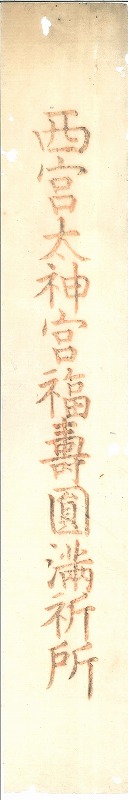 西宮太神宮福壽圓滿祈所